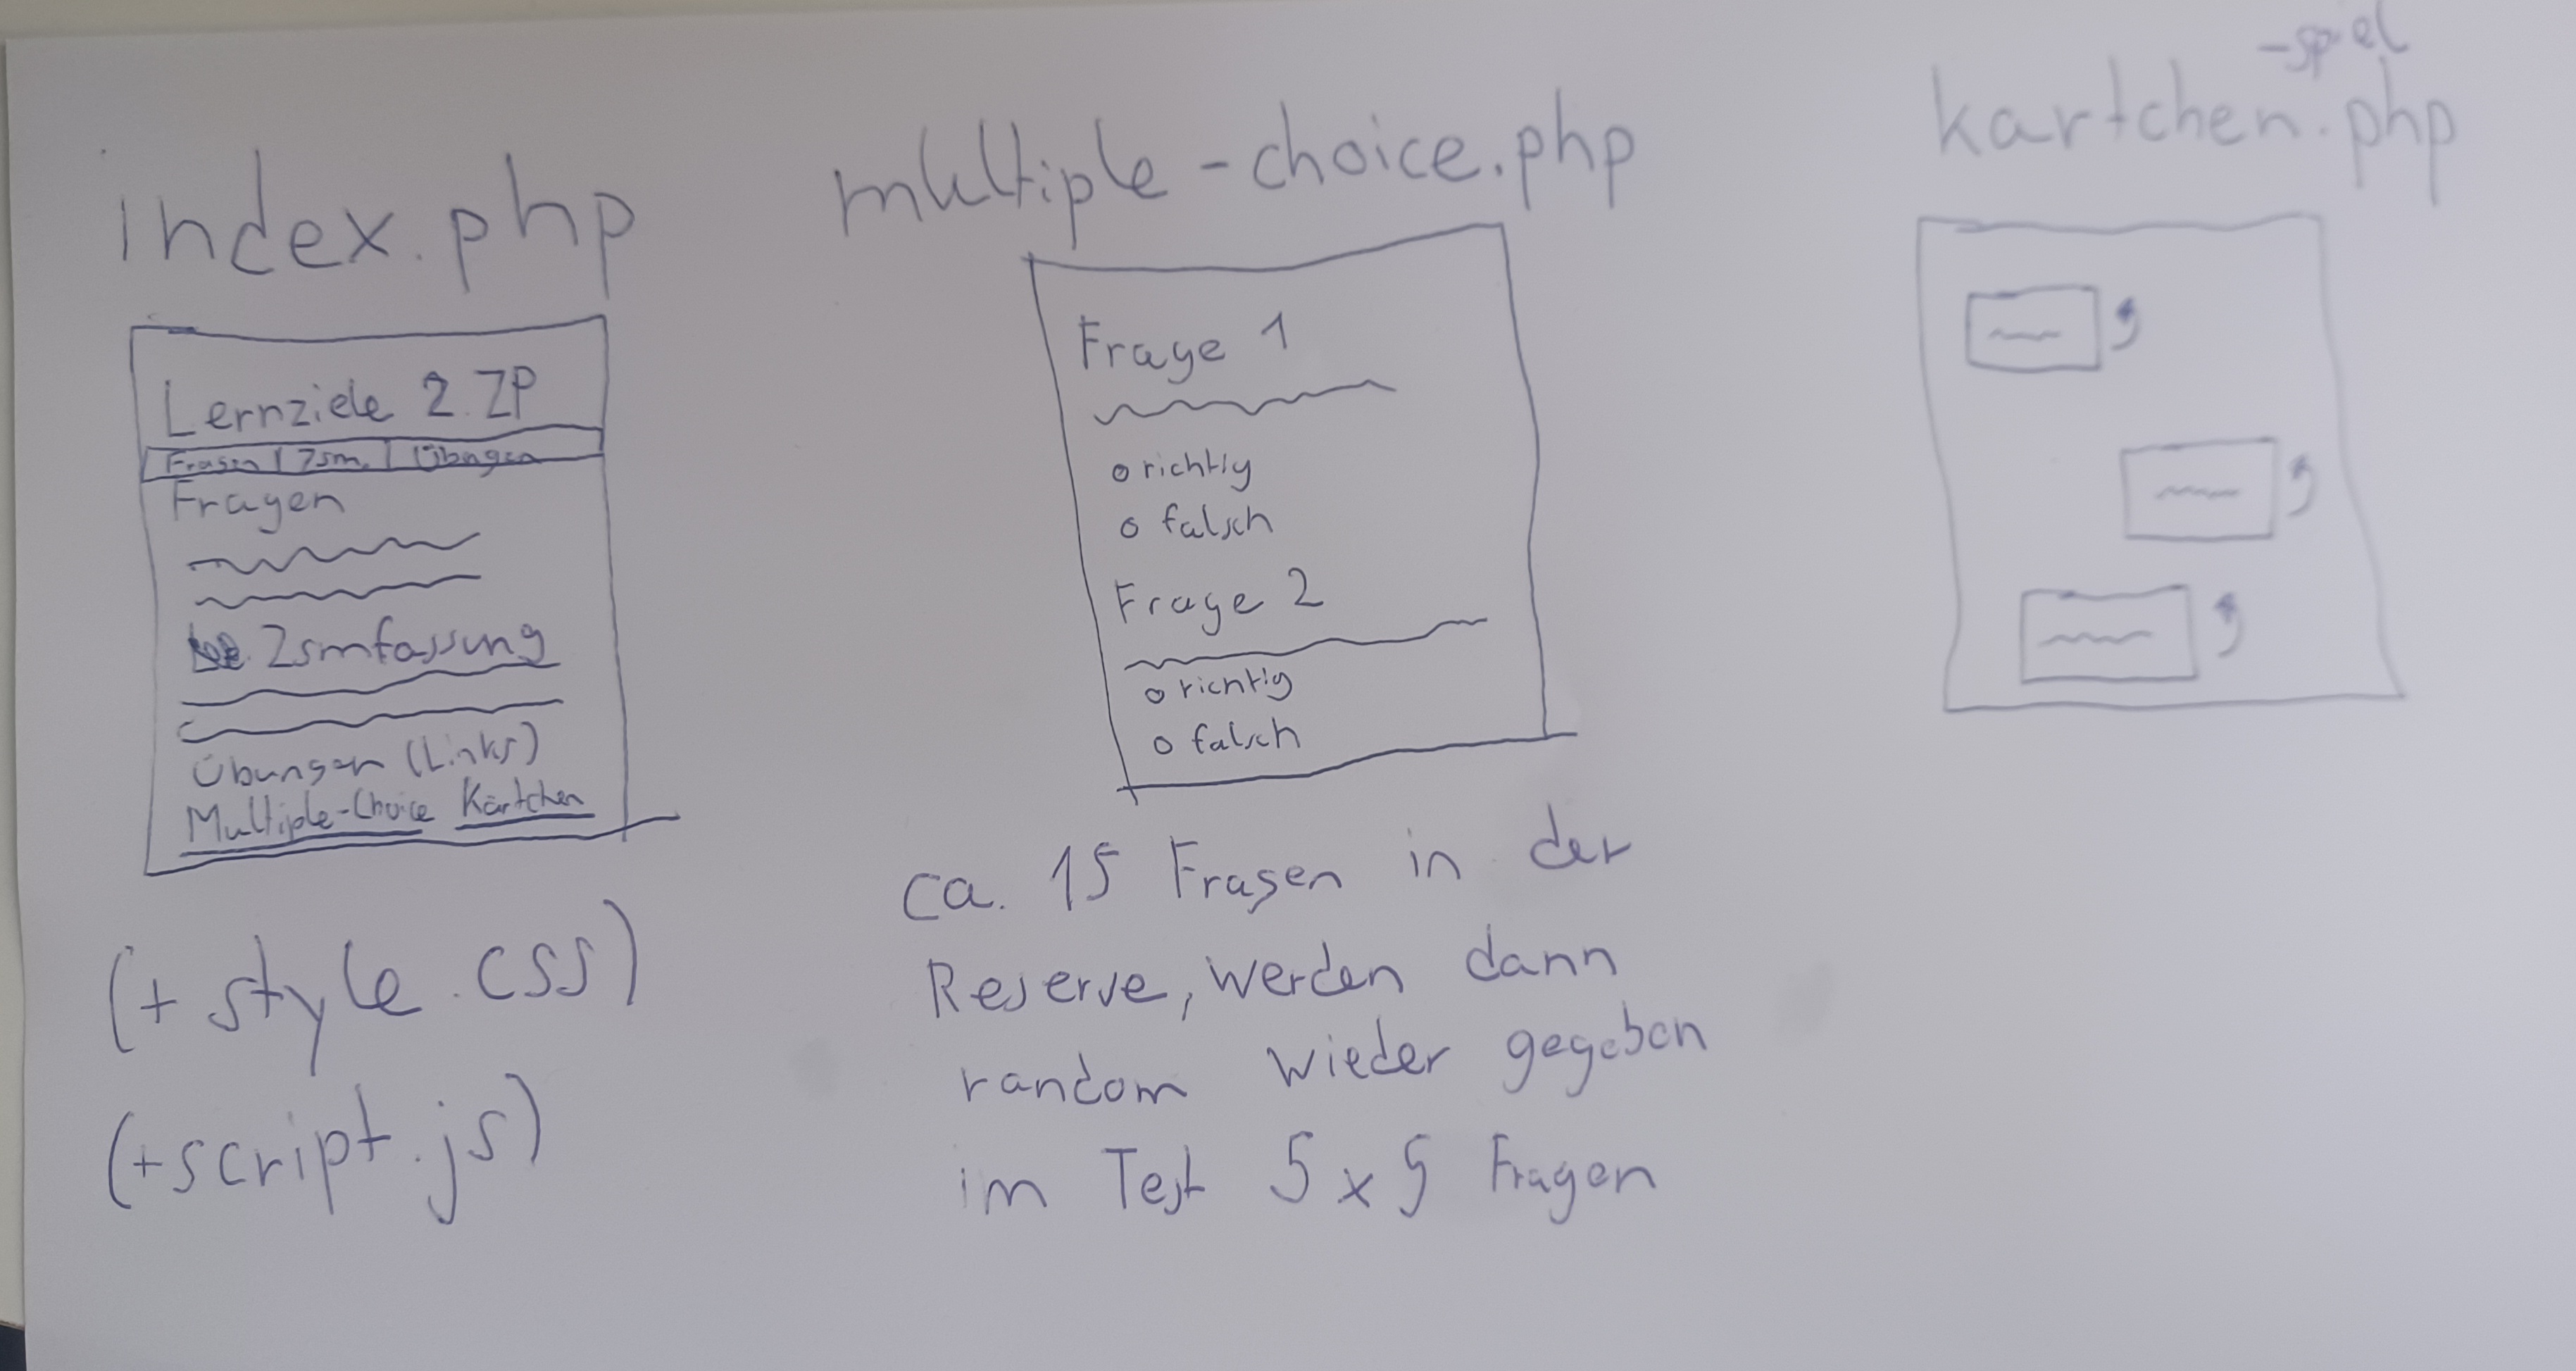 index.php
Lernziele 2. ZP
Fragen | Zsm. | Übungen
Fragen
Zsmfassung
Übungen (Links)
Multiple-Choice Kärtchen
(+ style.css)
(+script.js)
multiple-choice.php
Frage 1
o richtig
o falsch
Frage 2
o richtig
o falsch
ca. 15 Fragen in der
Reserve, werden dann
random wieder gegeben
im Test 5x5 Fragen
-spiel
kartchen.php